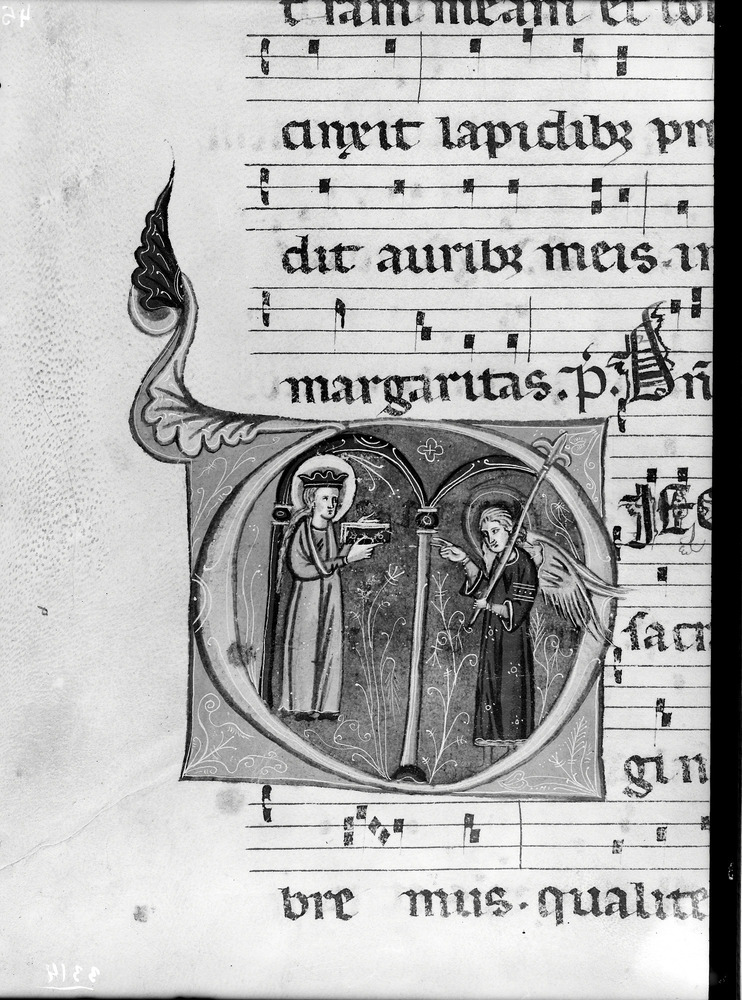 t ram meam et col
cinxit lapidibꝫ pre
dit auribꝫ meis. in
margaritas. p̄. Dn̄
sacr
gin
bre mus. qualite
3314